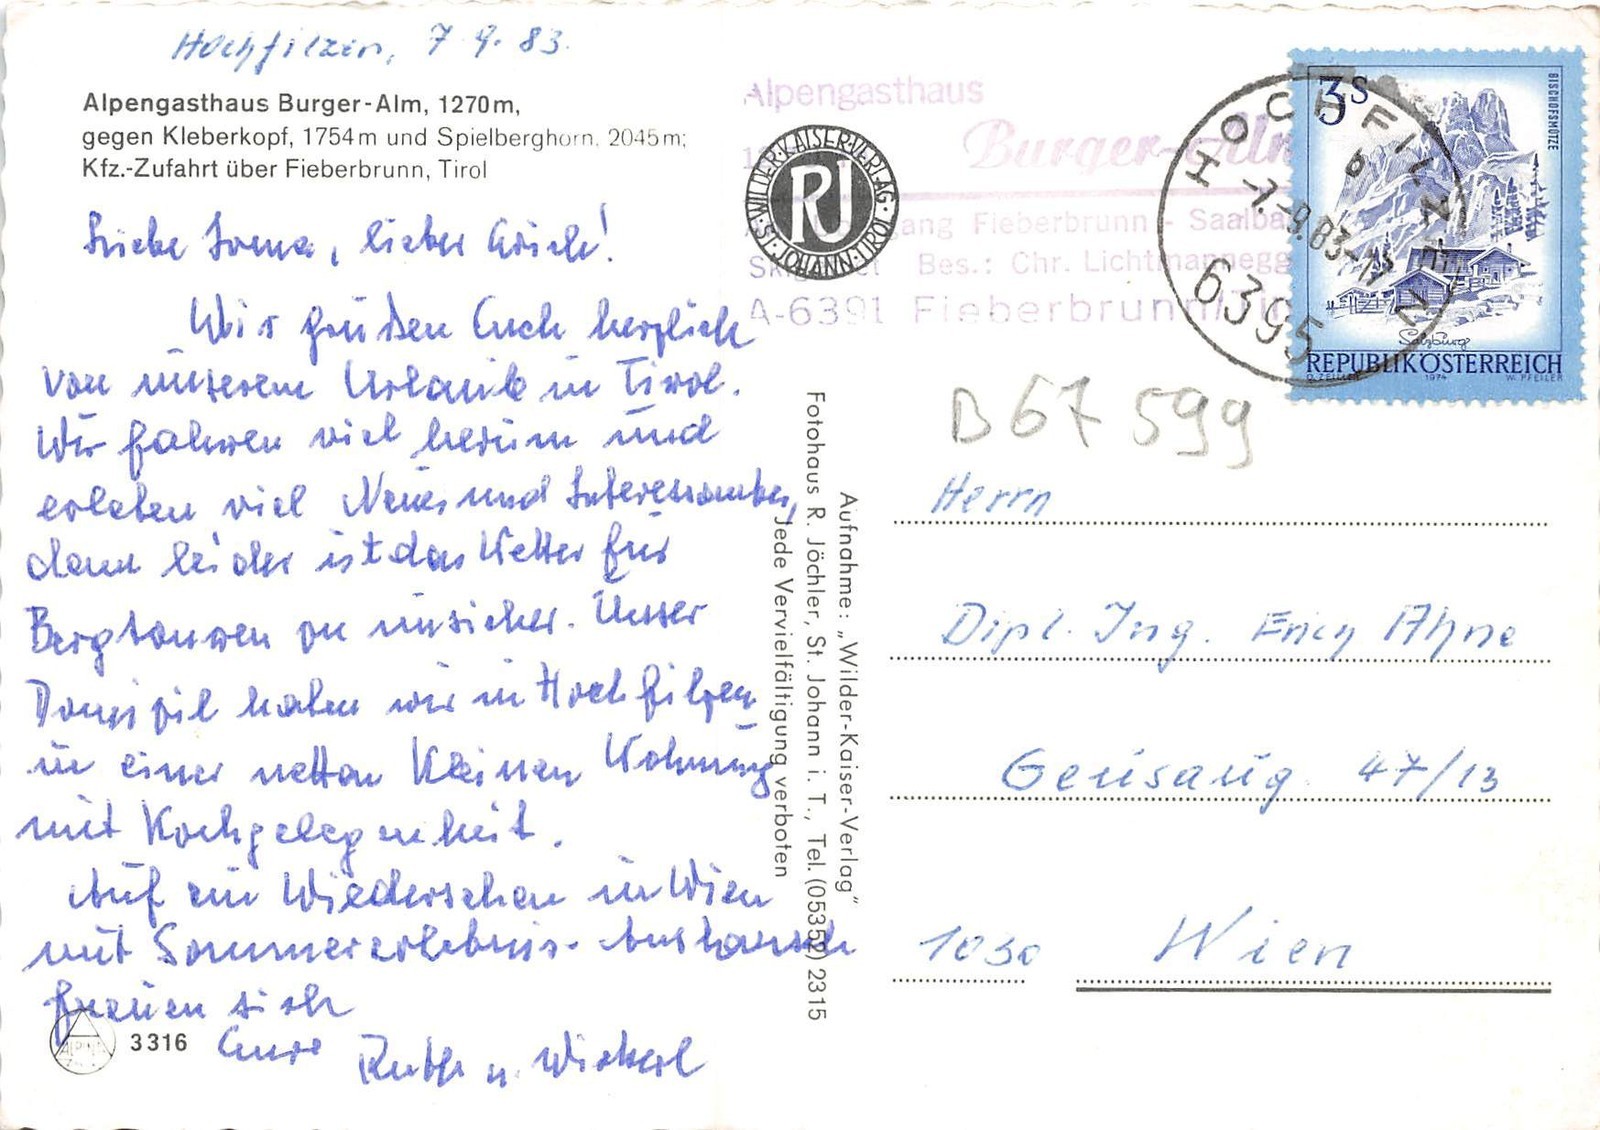 Hochfilzen, 7 9. 83.
Alpengasthaus Burger-Alm, 1270m,
gegen Kleberkopf, 1754m und Spielberghorn, 2045m;
Kfz.-Zufahrt über Fieberbrunn, Tirol
Liebe, lieber Erich!
Wir grüßen Euch herzlich
von unserem Urlaub in Tirol.
Wir fahren viel herum und
erleben viel Neues und Interessantes,
denn leider ist das Wetter für
Bergtouren zu unsicher. Unser
Domizil haben wir in Hochfilzen
in einer netten kleinen Wohnung
mit Kochgelegenheit.
Auf ein Wiedersehen in Wien
mit Sommererlebnis-Austausch
freuen sich
Eure Ruth u.
3316
WILDER-KAISER-VERLAG · ST. JOHANN-TIROL ·
RJ
Alpengasthaus
Burger-Alm
Fieberbrunn - Saalba
Bes.: Chr. Lichtmannegg
A-6391 Fieberbrunn/Ti
HOCHFILZEN
b
-7.-9.83-
6395
3S
BISCHOFSMÜTZE
Salzburg
REPUBLIK ÖSTERREICH
O. ZEILLER 1974 W. PFEILER
B 67 599
Aufnahme: „Wilder-Kaiser-Verlag“
Fotohaus R. Jöchler, St. Johann i. T., Tel. (05352) 2315
Jede Vervielfältigung verboten
Herrn
Dipl. Ing. Erich Ahne
Geusaug. 47/13
1030 Wien